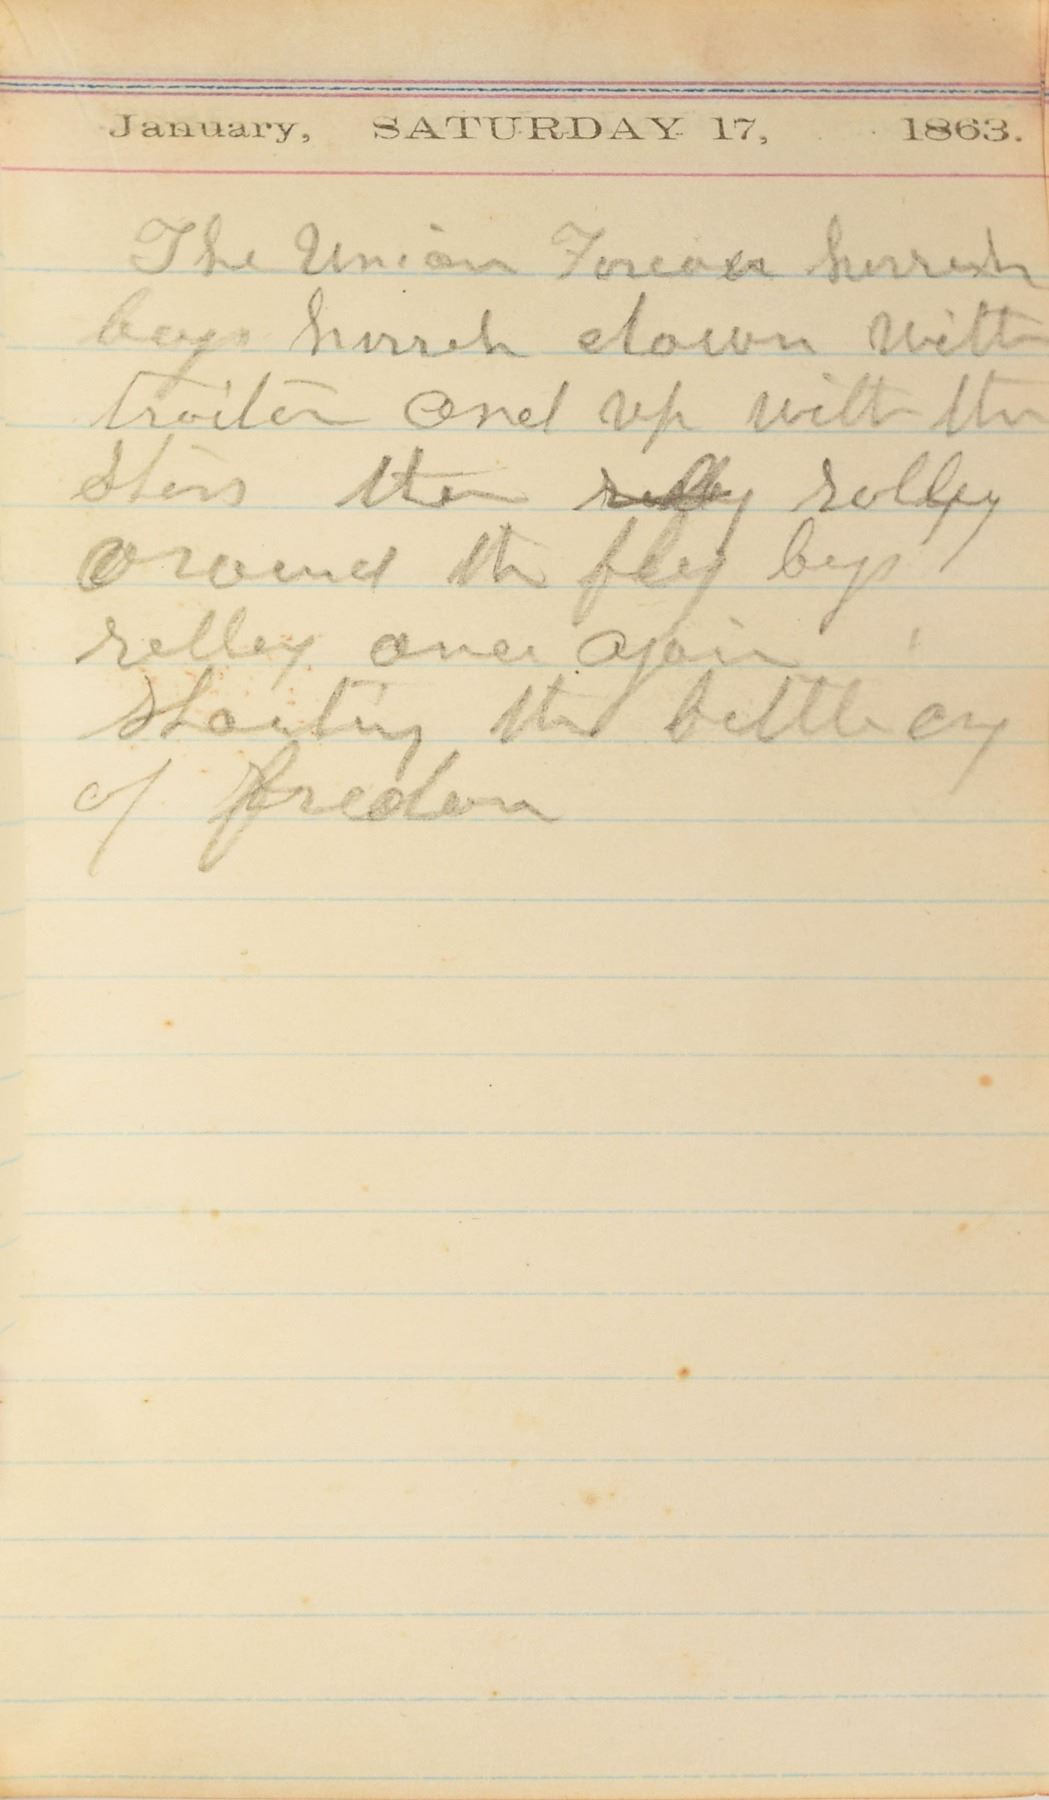 January, SATURDAY 17, 1863.
The Union Forever hurrah
boys hurrah down with
traitor and up with the
stars then rally
around the flag boys
rally once again
shouting the battle cry
of fredom